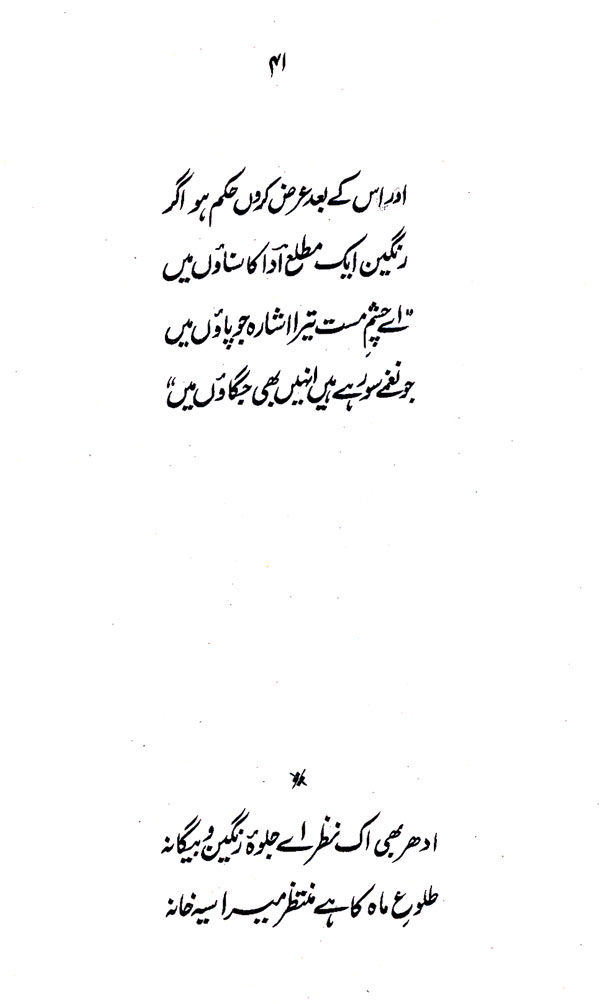 ۴۱
اور اس کے بعد عرض کروں حکم ہو اگر
رنگین ایک مطلع اداؔ کا سناؤں میں
"اے چشمِ مست تیرا اشارہ جو پاؤں میں
جو نغمے سو رہے ہیں انہیں بھی جگاؤں میں"
ادھر بھی اک نظر اے جلوۂ رنگین و بیگانہ
طلوعِ ماہ کا ہے منتظر میرا سیہ خانہ